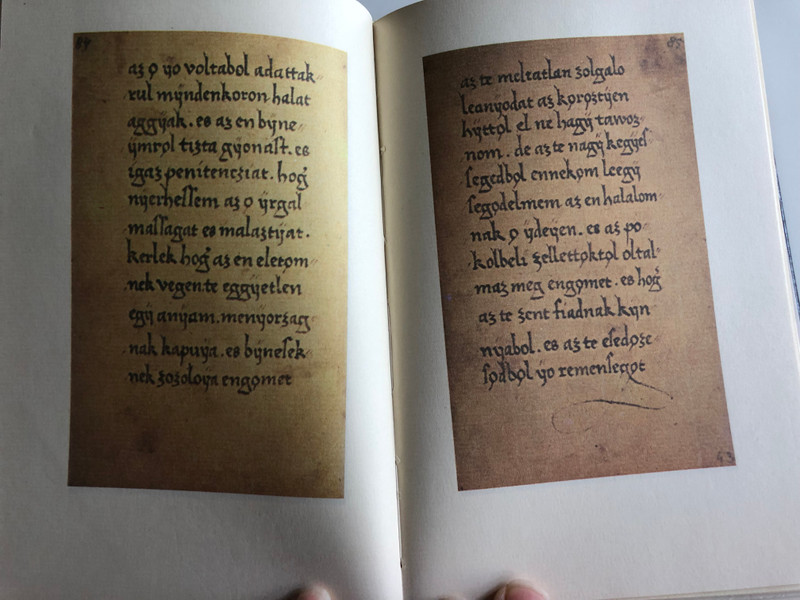 84
az o yo voltabol adattak
rul mÿndenkoron halat
aggÿak. es az en bÿne
ÿmrol tizta gÿonast. es
igaz penitencziat. hog̈
nÿerhessem az o ÿrgal
massagat es malaztÿat.
kerlek hog̈ az en eletom
nek vegente eggÿetlen
egÿ anÿam. menÿorzag
nak kapuÿa. es bÿnesek
nek zozoloÿa engomet
85
az te meltatlan zolgalo
leanÿodat az koroztÿen
hÿttol el ne hagÿ tawoz
nom. de az te nagÿ kegÿes
segedbol ennekom leegÿ
segodelmem az en halalom
nak o ÿdeÿen. es az po
kolbeli zellettoktol oltal
maz meg engomet. es hog̈
az te zent fiadnak kÿn
nÿabol. es az te esedoze
sodbol ÿo remensegot
43